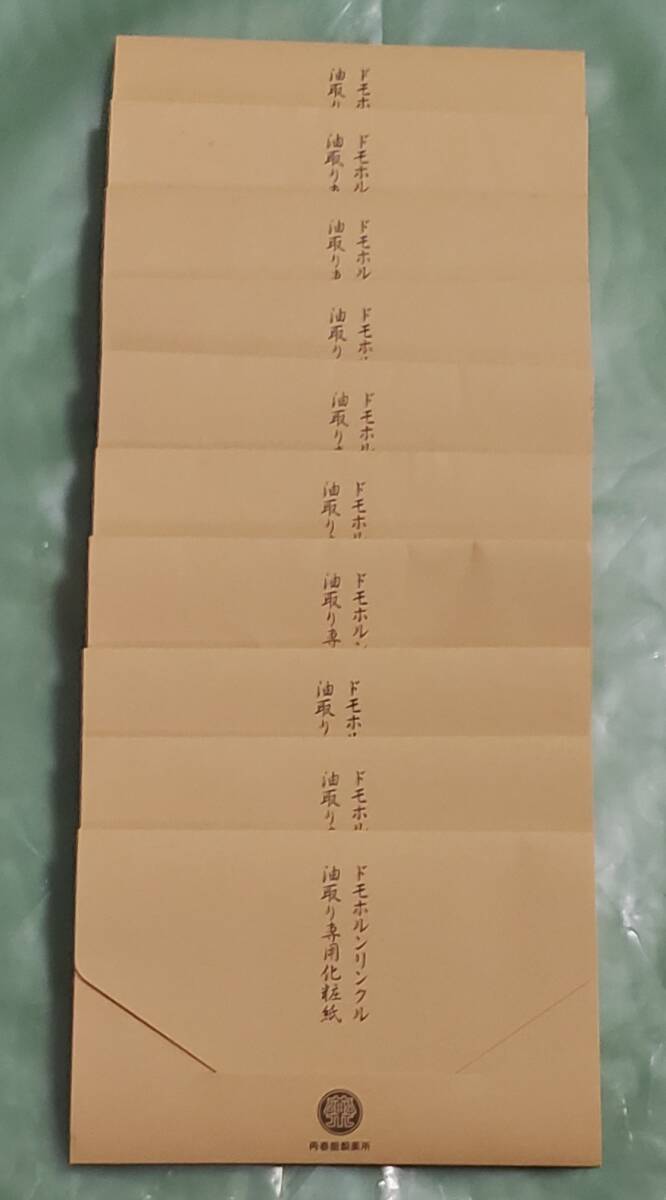 ドモホ
油取り
ドモホル
油取り
ドモホル
油取り
ドモホ
油取り
ドモホル
油取り
ドモホ
油取り
ドモホルン
油取り専
ドモホ
油取り
ドモホ
油取り
ドモホルンリンクル
油取り専用化粧紙
再春館製薬所